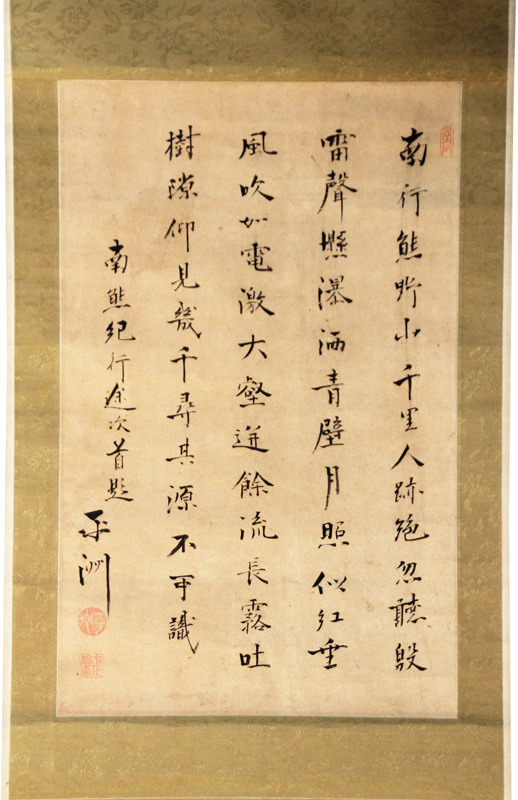 南行熊野山千里人跡絶忽聽殷
雷聲懸瀑洒青壁月照似紅垂
風吹如電激大壑迸餘流長露吐
樹隙仰見幾千尋其源不可識
南熊紀行途次首題
平洲